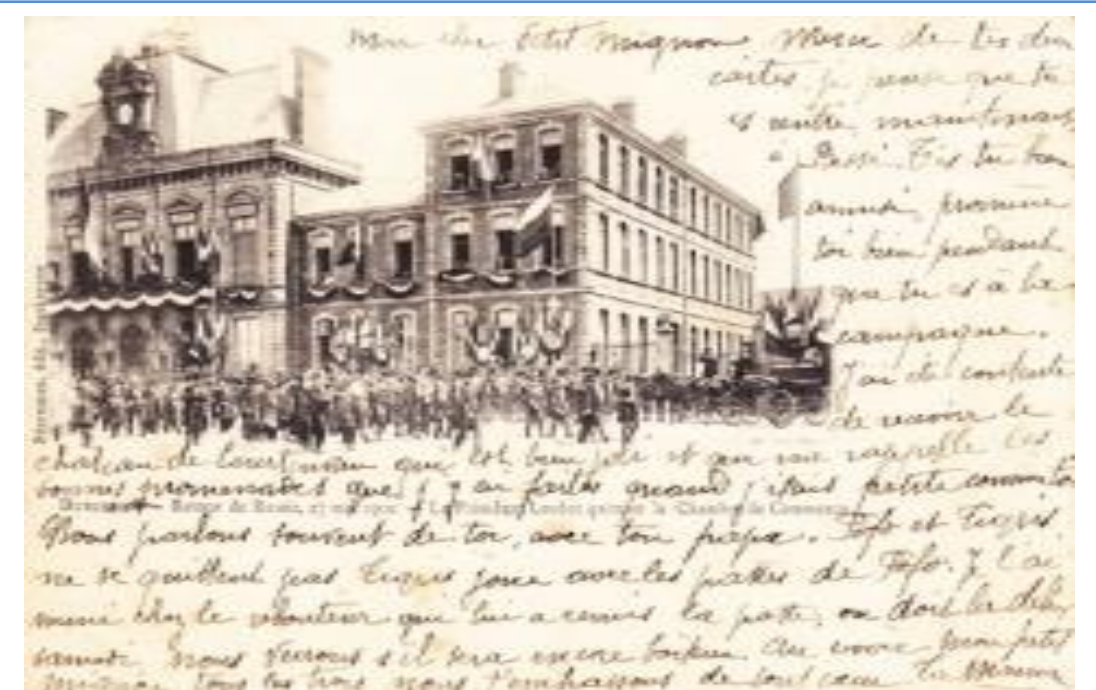 Mon cher petit mignon Merci de tes deux
cartes, je pense que tu
es rentré maintenant
a Passi. T'es tu bien
amusé, promene
toi bien pendant
que tu es à la
campagne.
J'ai été contente
de revoir le
chateau de qui est bien joli et qui me rappelle les
bonnes promenades que j'y ai faites quand j'étais petite comme toi
Dunkerque - Retour de Russie, 27 mai 1902 - Le Président Loubet quittant la Chambre de Commerce
Nous parlons souvent de toi, avec ton papa. Fofo et Tigris
ne se quittent pas Tigris joue avec les pattes de Fofo. Je l'ai
mené chez le rebouteur qui lui a remis la patte, on doit la
samedi nous verrons s'il sera encore Au revoir mon petit
mignon tous les trois nous t'embrassons de tout coeur ta Meme